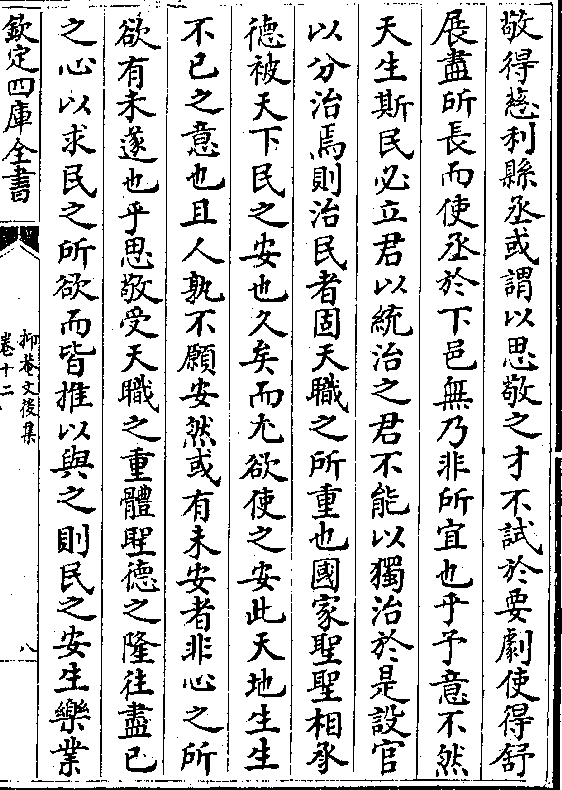 敬得慈利縣丞或謂以思敬之才不試於要劇使得舒
展盡所長而使丞於下邑無乃非所宜也乎予意不然
天生斯民必立君以統治之君不能以獨治於是設官
以分治焉則治民者固天職之所重也國家聖聖相承
德被天下民之安也久矣而尤欲使之安此天地生生
不已之意也且人孰不願安然或有未安者非心之所
欲有未遂也乎思敬受天職之重體聖德之隆往盡已
之心以求民之所欲而皆推以與之則民之安生樂業
欽定四庫全書
抑菴文後集
卷十二
八